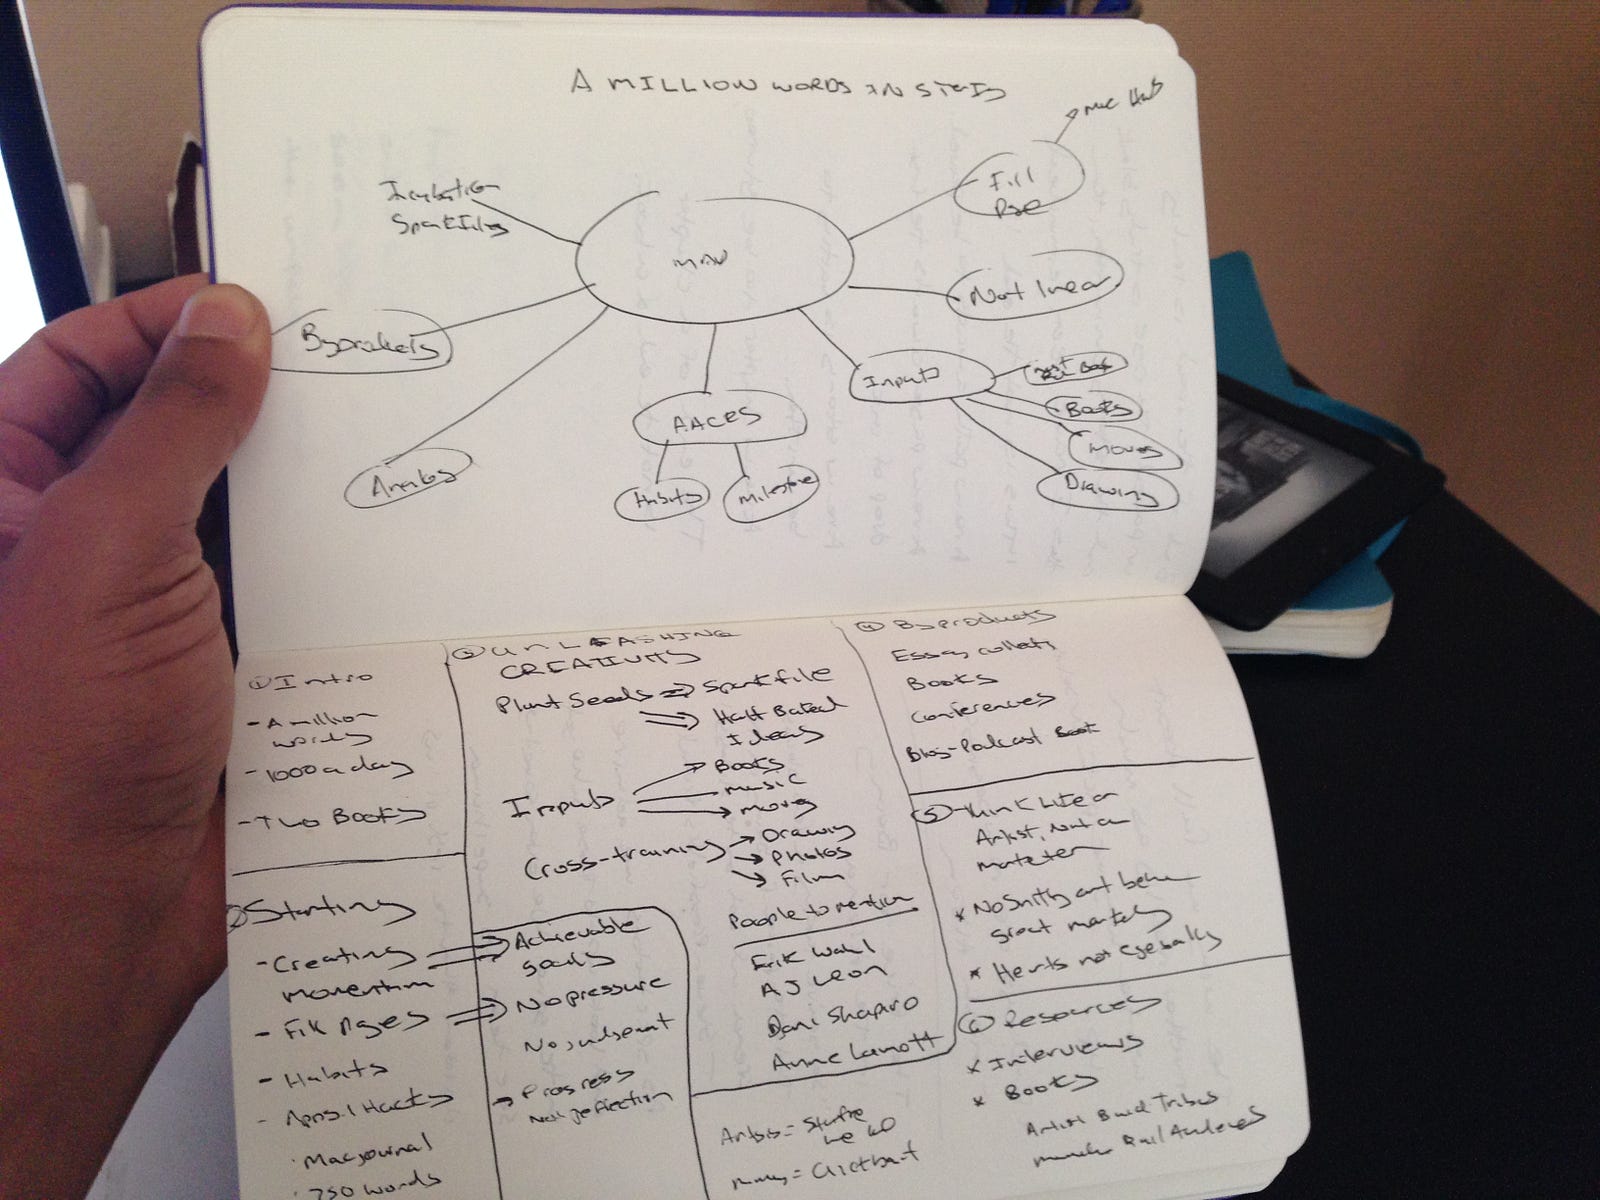 A MILLION WORDS IN STEPS
Incubation
Spark Files
Fill
Page
Not linear
Byproducts
Inputs
Books
Movies
Drawing
AACES
Habits
Milestone
Analog
① Intro
- A million
words
- 1000 a day
- Two Books
② Starting
- Creating
momentum
- Fill Pages
- Habits
- Apps + Hacks
Macjournal
750 words
Achievable
goals
No pressure
No judgement
Progress
Not perfection
③ UNLEASHING
CREATIVITY
Plant Seeds
Spark file
Half Baked
Ideas
Inputs
Books
music
movies
Cross-training
Drawing
Photos
Film
People to mention
Erik Wahl
AJ Leon
Dani Shapiro
Anne Lamott
Artists =
= Clickbait
④ Byproducts
Essay collecti
Books
Conferences
Blog-Podcast Book
⑤ Think Like an
Artist, Not a
marketer
* No Shitty art behin
great marketing
* Hearts not eyeballs
⑥ Resources
* Interviews
* Books
Artist Build Tribes